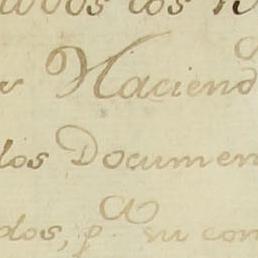 los
Haciend
los Documen
dos, pª su con